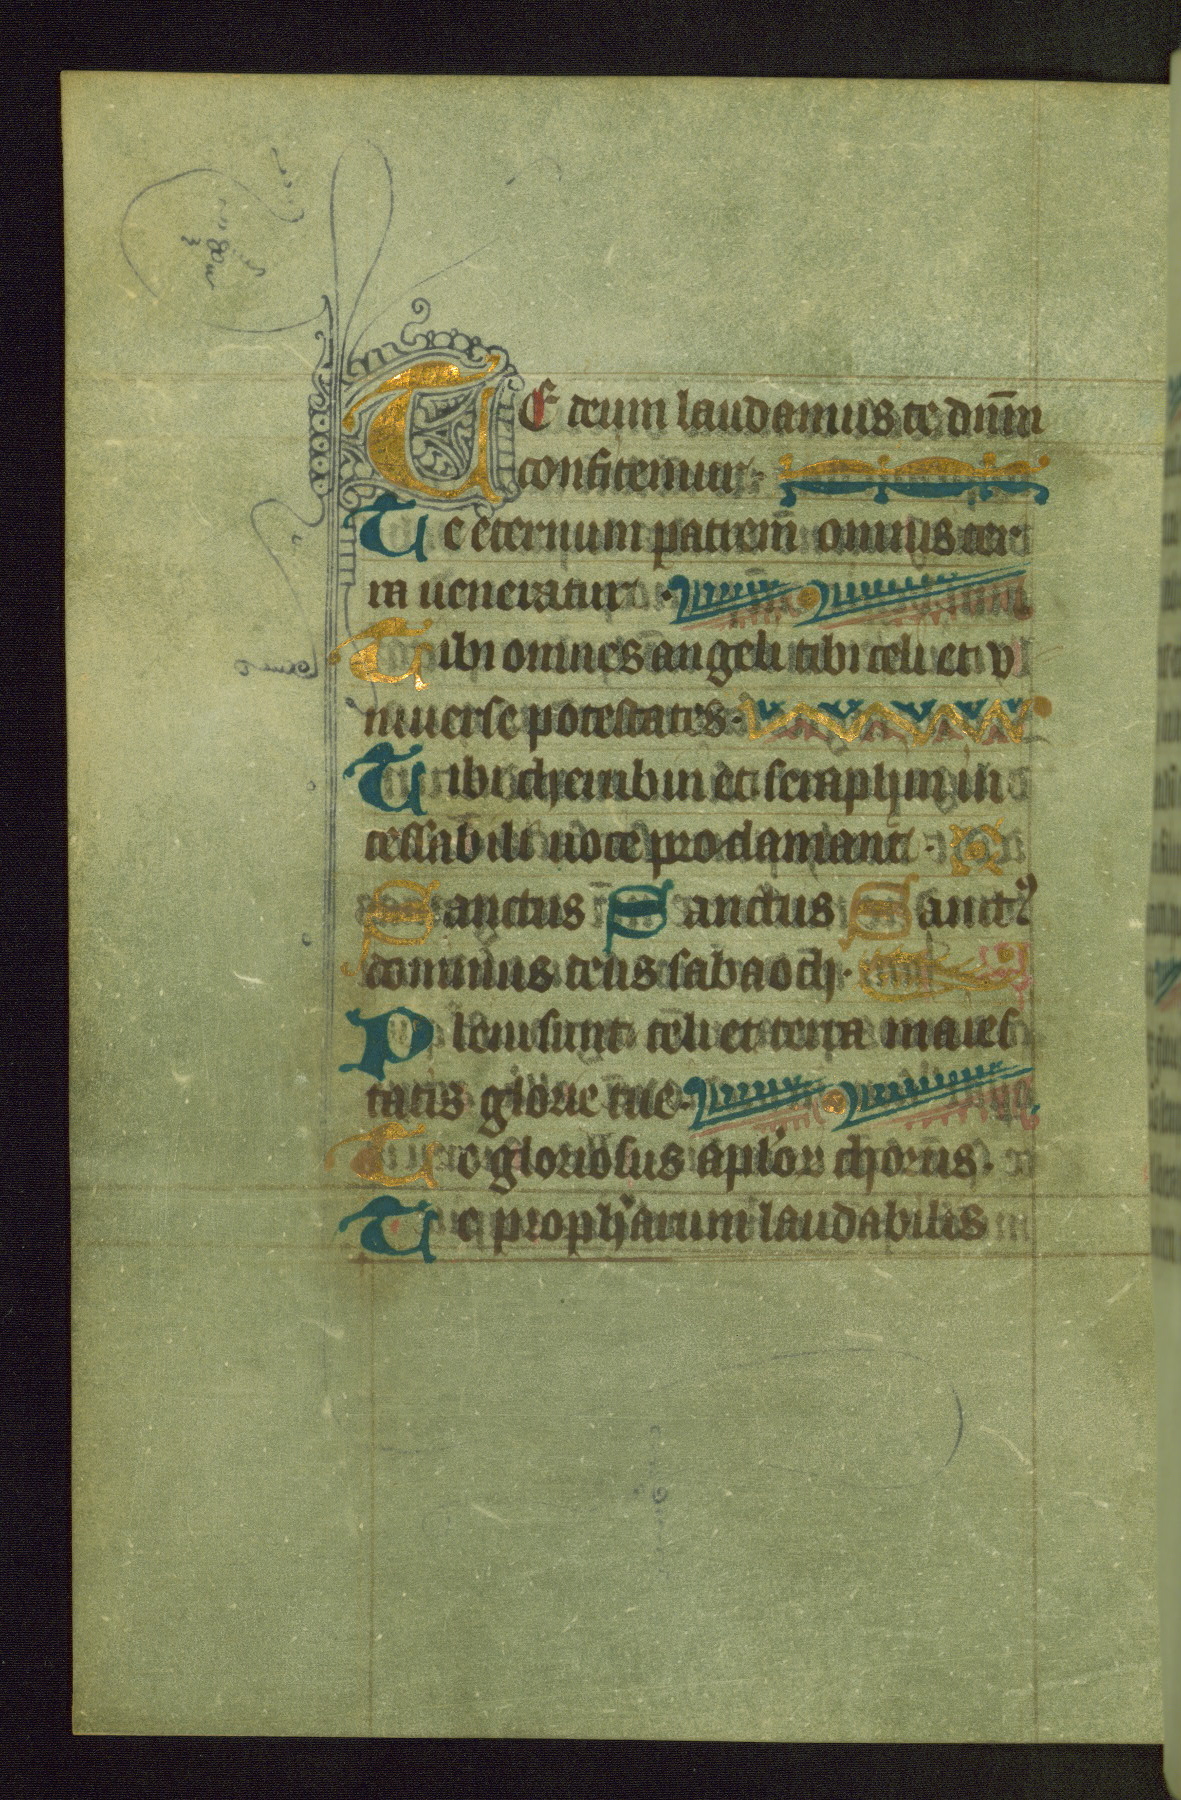 TE deum laudamus te dnm̄
confitemur·
Te eternum patrem omnis ter
ra ueneratur ·
Tibi omnes angeli tibi celi et v
niuerse potestates·
Tibi cherubin et seraphin in
cessabili uoce proclamant ·
Sanctus Sanctus Sanctꝰ
dominus deus sabaoth·
Pleni sunt celi et terra maies
tatis glorie tue·
Te gloriosus aplor chorus·
Te propharum laudabilis